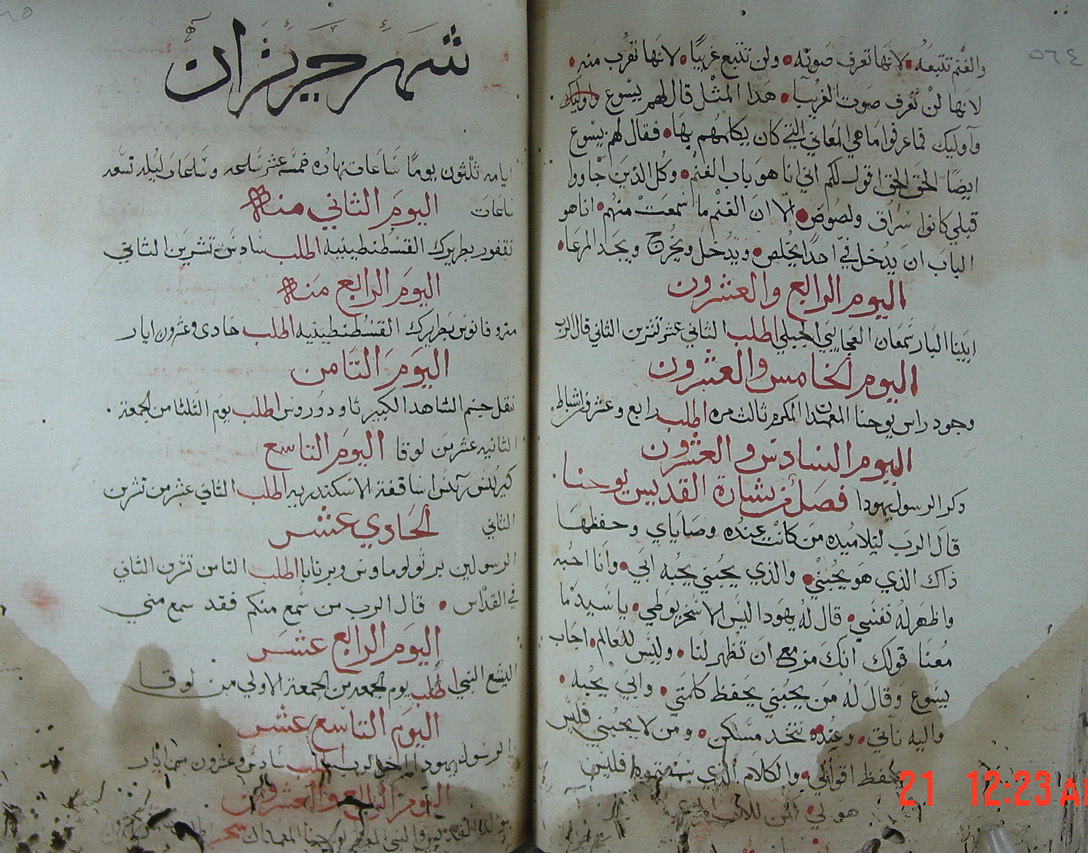 ٥٦٤
والغنم تتبعه لانها تعرف صوته ولن تتبع غريبًا لانها تهرب منه
لانها لن تعرف صوت الغريب هذا المثل قال لهم يسوع
وأوليك فما عرفوا ما هي المعاني التي كان يكلمهم بها فقال لهم يسوع
ايضا الحق الحق اقول لكم اني انا هو باب الغنم وكل الذين جاووا
قبلي كانوا سراق ولصوص الا ان الغنم ما سمعت منهم انا هو
الباب ان يدخل في احدًا يخلص ويدخل ويخرج ويجد المرعا
اليوم الرابع والعشرون
ابينا البار سمعان العجايبي الجبلي اطلب الثاني عشر تشرين الثاني قال الرب
اليوم الخامس والعشرون
وجود راس يوحنا المعمدان المكرم ثالث مره اطلب رابع وعشرين اشباط
اليوم السادس والعشرون
ذكر الرسول يهودا فصل من بشارة القديس يوحنا
قال الرب لتلاميذه من كانت عنده وصاياي وحفظها
ذاك الذي هو يحبني والذي يحبني يحبه ابي وأنا احبه
واظهر له نفسي قال له يهودا ليس الاسخريوطي يا سيد ما
معنا قولك انك مزمع ان تظهر لنا وليس للعالم اجاب
يسوع وقال له من يحبني يحفظ كلمتي وابي يحبه
واليه نآتي وعنده نتخذ مسكن ومن لا يحبني فليس
يحفظ اقوالي والكلام الذي سمعتموه فليس
هو لي
شهر حزيران
ايامه ثلثون يومًا ساعات نهاره خمسة عشر ساعه وساعات ليله تسعه
ساعات
اليوم الثاني منه
نقفور بطريرك القسطنطينيه اطلب سادس تشرين الثاني
اليوم الرابع منه
متروفانوس بطريرك القسطنطينيه اطلب حادي وعشرون ايار
اليوم الثامن
نقل جسم الشاهد الكبير ثاودوروس اطلب يوم الثلثا من الجمعة
الثانيه عشر من لوقا اليوم التاسع
كيرللس رئيس اساقفة الاسكندريه اطلب الثاني عشر من تشرين
الثاني الحادي عشر
الرسولين برثولوماوس وبرنابا اطلب الثامن تشرين الثاني
في القداس قال الرب من سمع منكم فقد سمع مني
اليوم الرابع عشر
اليشع النبي اطلب يوم الجمعه من الجمعة الاولي من لوقا
اليوم التاسع عشر
الرسول يهودا اخو الرب اطلب سادس وعشرون من ايار
اليوم الرابع والعشرون
يوحنا المعمدان سحر
21 12:23 AM